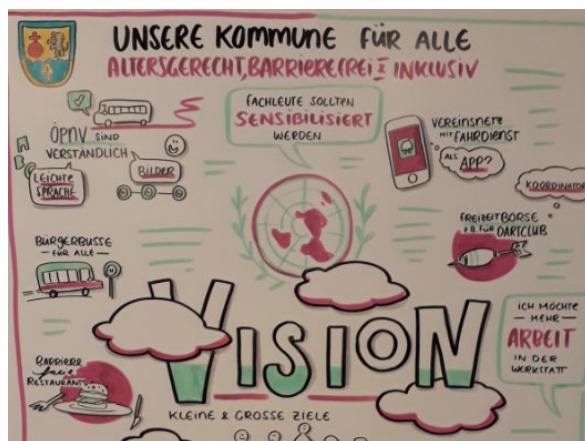 UNSERE KOMMUNE FÜR ALLE
ALTERSGERECHT, BARRIEREFREI & INKLUSIV
ÖPNV SIND
VERSTÄNDLICH
LEICHTE
SPRACHE
BILDER
FACHLEUTE SOLLTEN
SENSIBILISIERT
WERDEN
VEREINSNETZ
MIT FAHRDIENST
ALS APP?
KOORDINATOR
FREIZEITBÖRSE
z.B. FÜR
DARTCLUB
BÜRGERBUSSE
— FÜR ALLE —
H
VISION
ICH MÖCHTE
— MEHR —
ARBEIT
IN DER
WERKSTATT
BARRIERE
freie
RESTAURANTS
KLEINE & GROSSE ZIELE